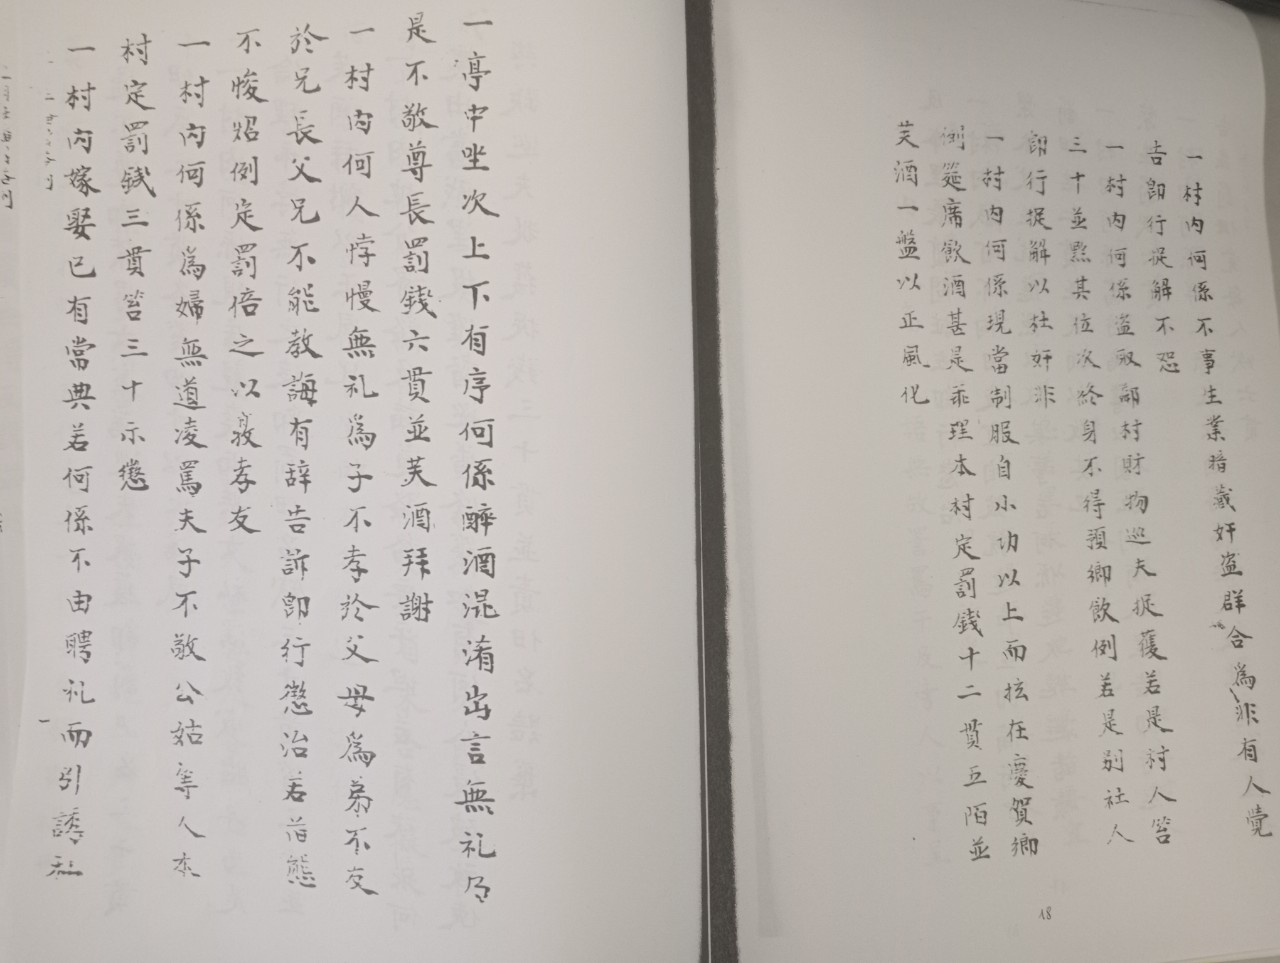 一村内何係不事生業暗藏奸盗群合為非有人覺
告即行捉解不恕
一村内何係盗取鄙村財物巡夫捉獲若是村人笞
三十並點其位次終身不得預鄉飲例若是别社人
即行捉解以杜奸非
一村内何係現當制服自小功以上而抂在慶賀鄉
例筵席飲酒甚是乖理本村定罰錢十二貫五陌並
芙酒一盤以正風化
18
一亭中坐次上下有序何係醉酒混淆出言無礼乃
是不敬尊長罰錢六貫並芙酒拜謝
一村内何人悖慢無礼為子不孝於父母為弟不友
於兄長父兄不能教誨有辞告訴即行懲治若前態
不悛炤例定罰倍之以敦孝友
一村内何係為婦無道凌罵夫子不敬公姑等人本
村定罰銭三貫笞三十示懲
一村内嫁娶已有當典若何係不由聘礼而引誘私